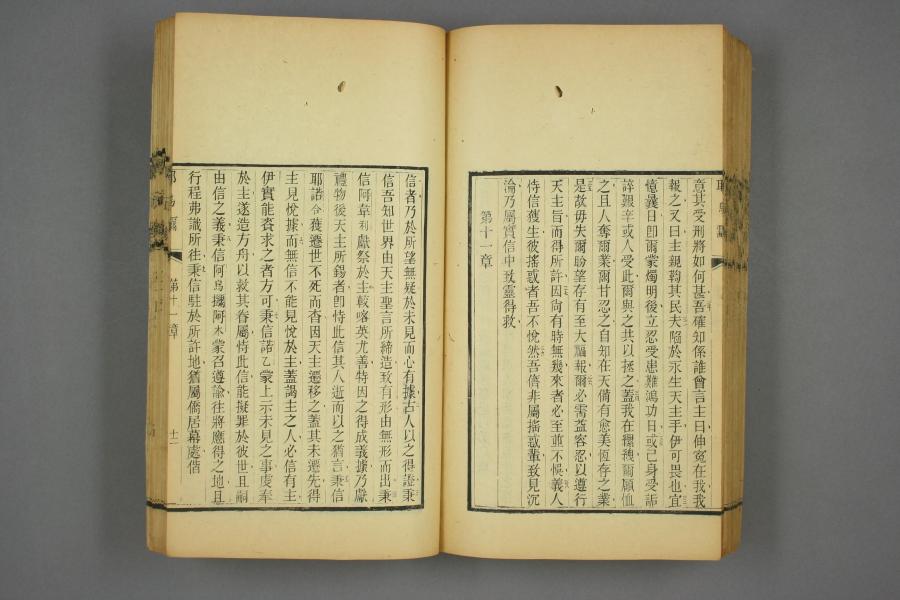 意其受刑將如何甚吾確知係誰曾言主曰伸冤在我我
報之又曰主親鞫其民夫陷於永生天主手伊可畏也宜
憶曩日卽爾蒙燭明後立忍受患難鴻功日或己身受詬
誶艱辛或人受此爾與之共以拯之蓋我在縲絏爾顧恤
之且人奪爾業爾甘忍之自知在天備有愈美恆存之業
是故毋失爾盼望存有至大福報爾必需益容忍以遵行
天主旨而得所許因尙有時無幾來者必至並不悞義人
恃信獲生彼搖惑者吾不悅然吾儕非屬搖惑輩致見沉
淪乃屬實信中致靈得救
第十一章
信者乃於所望無疑於未見而心有據古人以之得證秉
信吾知世界由天主聖言所締造致有形由無形而出秉
信阿韋利獻祭於主較喀英尤善特因之得成義據乃獻
禮物後天主所錫者卽恃此信其人逝而以之猶言秉信
耶諾合獲遷世不死而杳因天主遷移之蓋其未遷先得
主見悅據而無信不能見悅於主蓋謁主之人必信有主
伊實能賚求之者方可秉信諾乙蒙上示未見之事虔奉
於主遂造方舟以救其眷屬恃此信能擬罪於彼世且嗣
由信之義秉信阿烏攔阿木蒙召遵諭往將應得之地且
行程弗識所往秉信駐於所許地猶屬僑居幕處偕
第十一章
十二